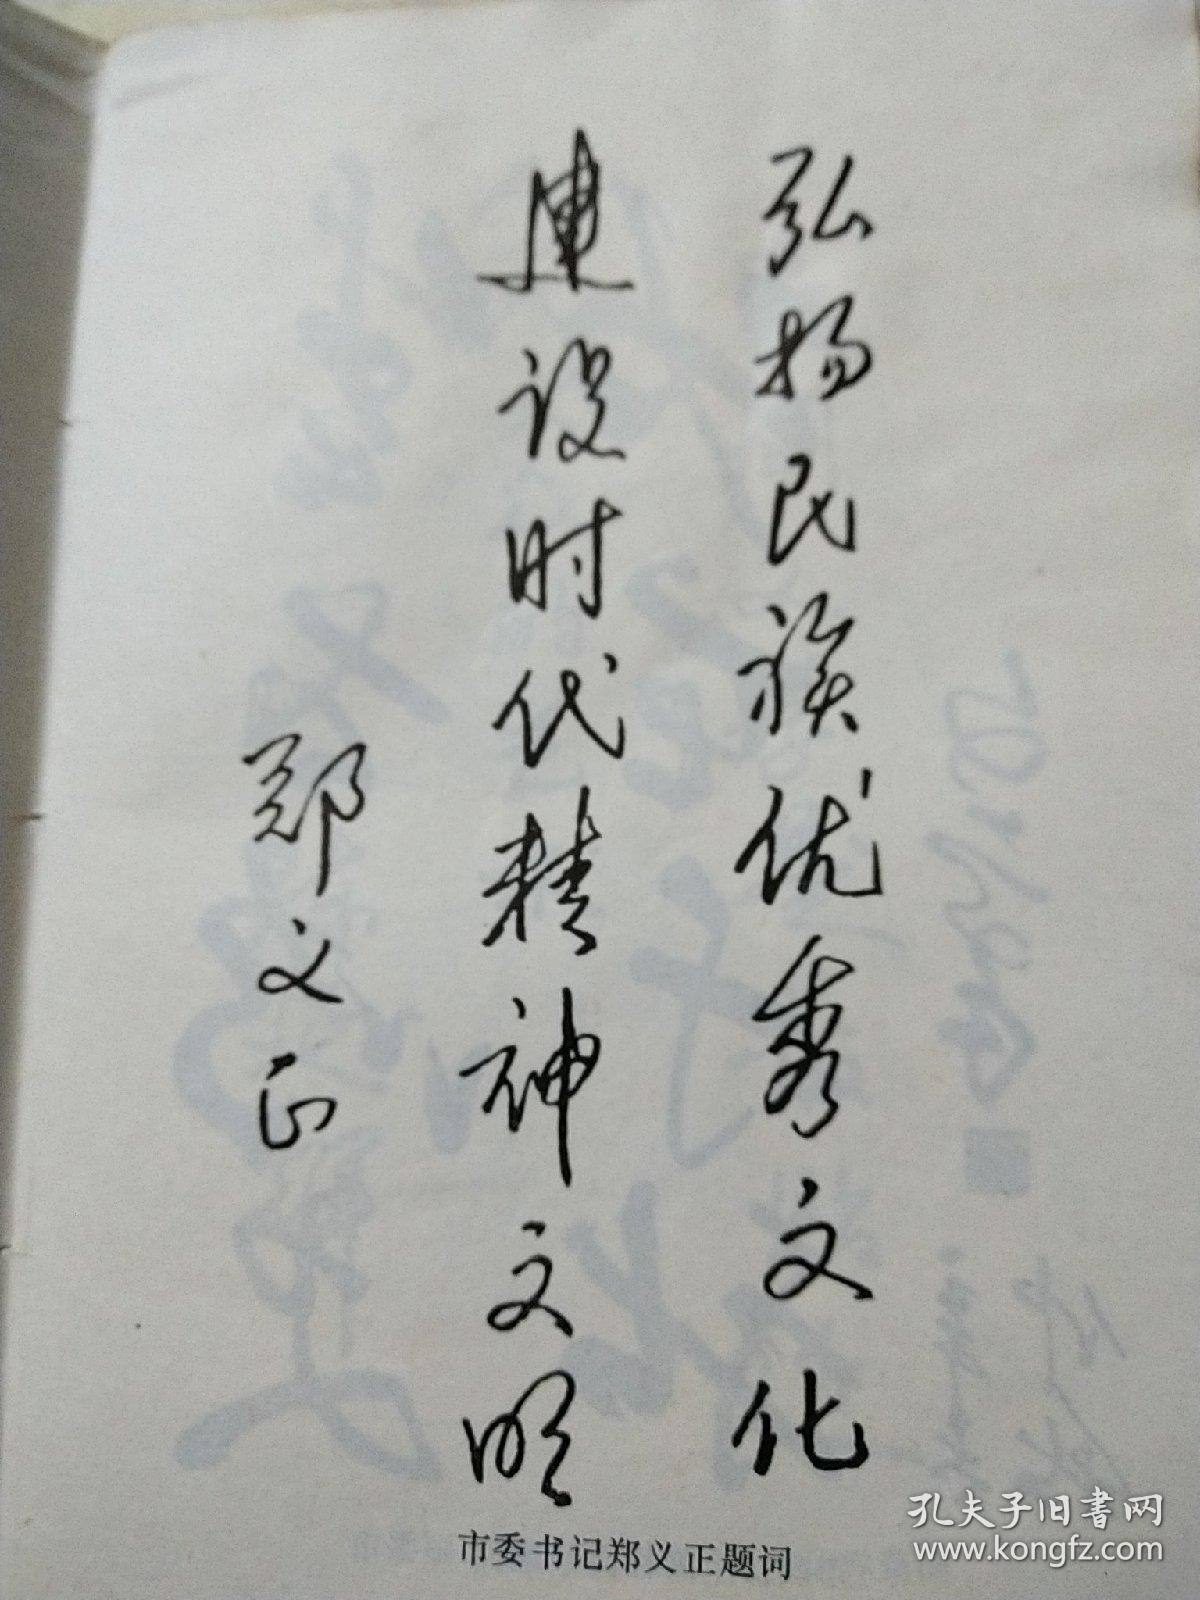 弘扬民族优秀文化
建设时代精神文明
郑义正
市委书记郑义正题词
孔夫子旧書网
www.kongfz.com